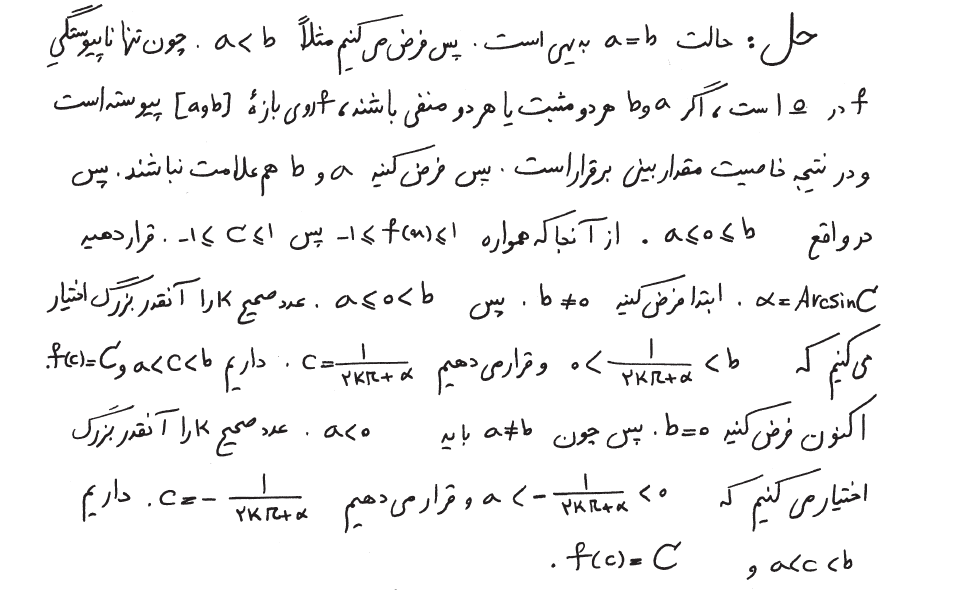 حل : حالت a=b بدیهی است . پس فرض می کنیم مثلاً a<b . چون تنها ناپیوستگیِ
f در ۰ است ، اگر a و b هر دو مثبت یا هر دو منفی باشند ، f روی بازهٔ [a و b] پیوسته است
و در نتیجه خاصیت مقدار بینی برقرار است . پس فرض کنید a و b هم علامت نباشند . پس
در واقع a⩽۰⩽b . از آنجا که همواره -۱⩽f(x)⩽۱ پس -۱⩽C⩽۱ . قرار دهید
α=ArcsinC . ابتدا فرض کنید b≠۰ . پس a⩽۰<b . عدد صحیح K را آنقدر بزرگ اختیار
می کنیم که ۰<۱/(۲Kπ+α)<b و قرار می دهیم c=۱/(۲Kπ+α) . داریم a<c<b و f(c)=C .
اکنون فرض کنید b=۰ . پس چون a≠b باید a<۰ . عدد صحیح K را آنقدر بزرگ
اختیار می کنیم که a<-۱/(۲Kπ+α)<۰ و قرار می دهیم c=-۱/(۲Kπ+α) . داریم
a<c<b و f(c)=C .